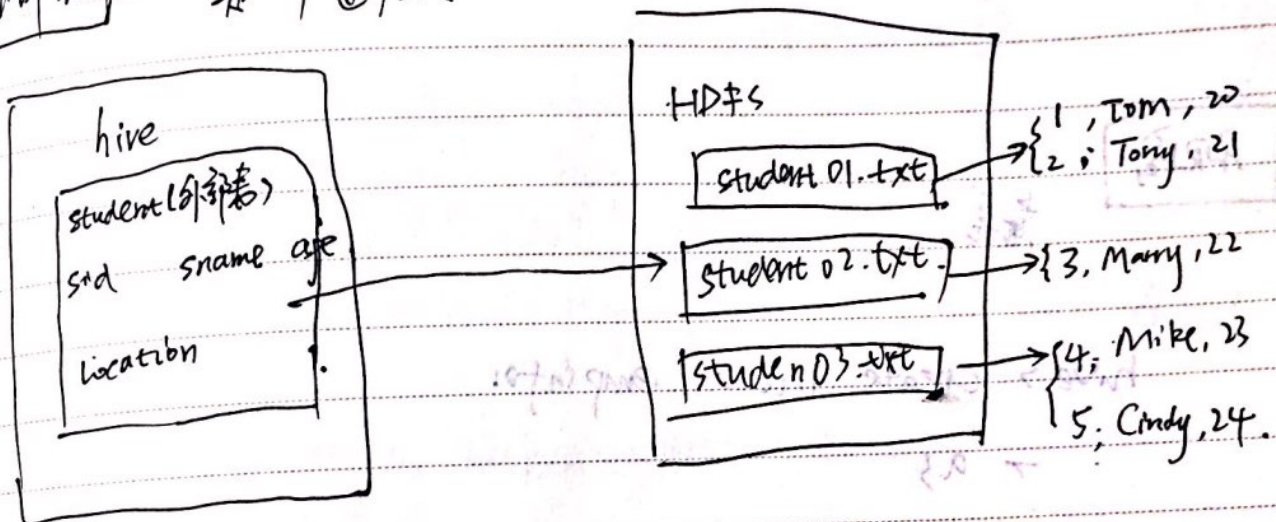 hive
student(外部表)
sid sname age
location
HDFS
student 01.txt
student 02.txt.
studen03.txt
1, Tom, 20
2, Tony, 21
3, Marry, 22
4, Mike, 23
5, Cindy, 24.